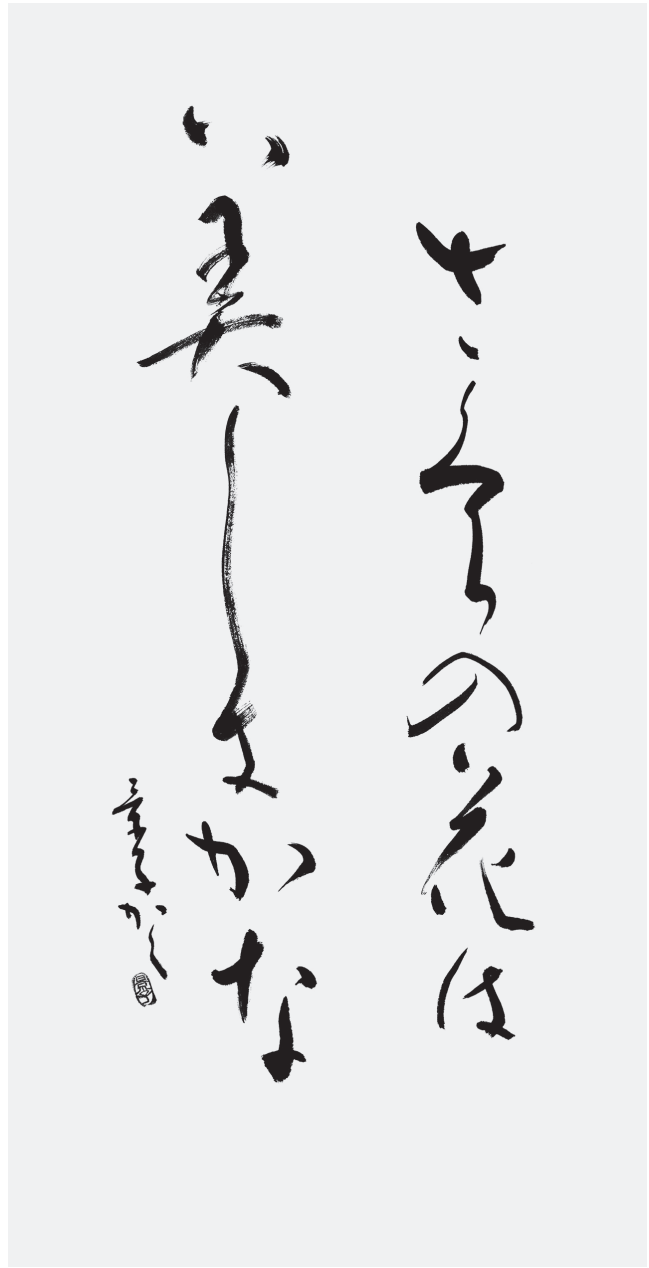 さくらの花は
美しきかな
子かく